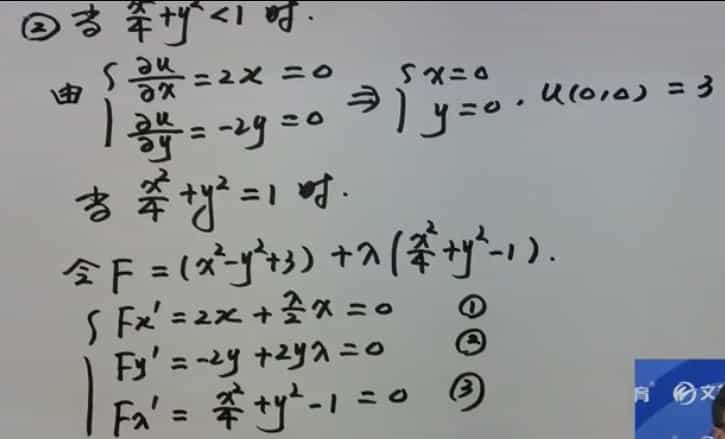 ② 当 x²/4 + y² < 1 时.
由 { ∂u/∂x = 2x = 0 ⇒ { x = 0
∂u/∂y = -2y = 0 y = 0 . u(0,0) = 3
当 x²/4 + y² = 1 时.
令 F = (x²-y²+3) + λ(x²/4 + y² - 1).
{ Fx' = 2x + λ/2 x = 0 ①
Fy' = -2y + 2yλ = 0 ②
Fλ' = x²/4 + y² - 1 = 0 ③
育 文